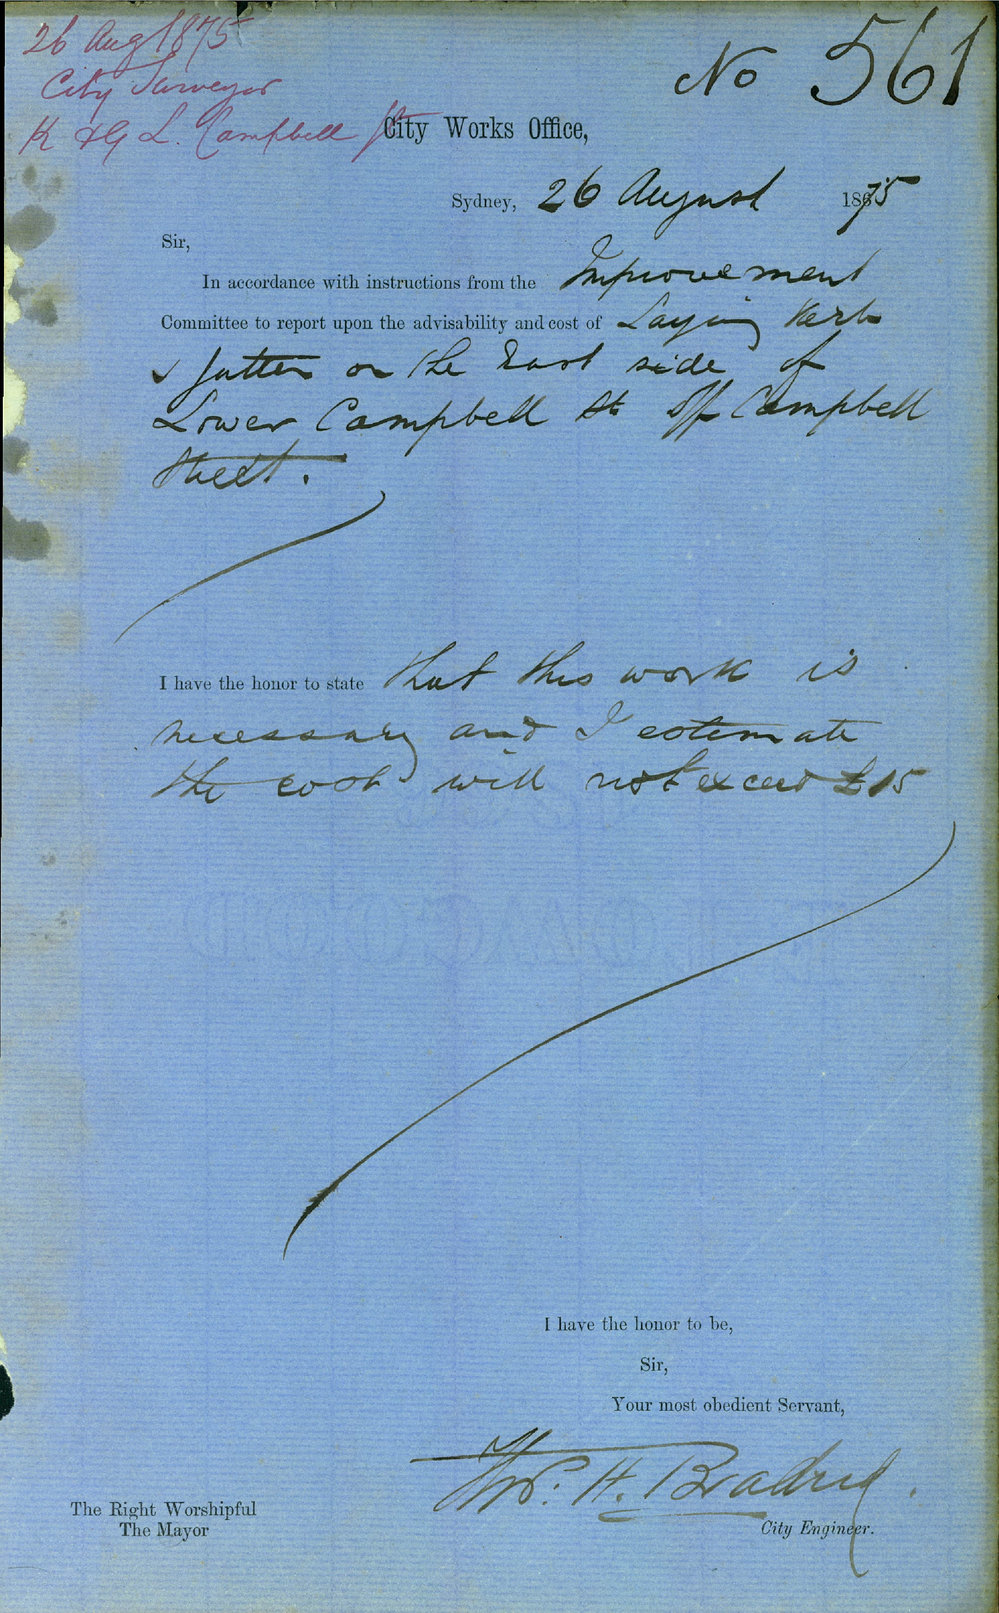 26 Aug 1875
City Surveyor
K & G L. Campbell St
No 561
City Works Office,
Sydney, 26 August 1875
Sir,
In accordance with instructions from the Improvement
Committee to report upon the advisability and cost of Laying Kerb
& gutter on the East side of
Lower Campbell St off Campbell
Street.
I have the honor to state that this work is
necessary and I estimate
the cost will not exceed £15
I have the honor to be,
Sir,
Your most obedient Servant,
Thos. H. Bradrid
City Engineer.
The Right Worshipful
The Mayor